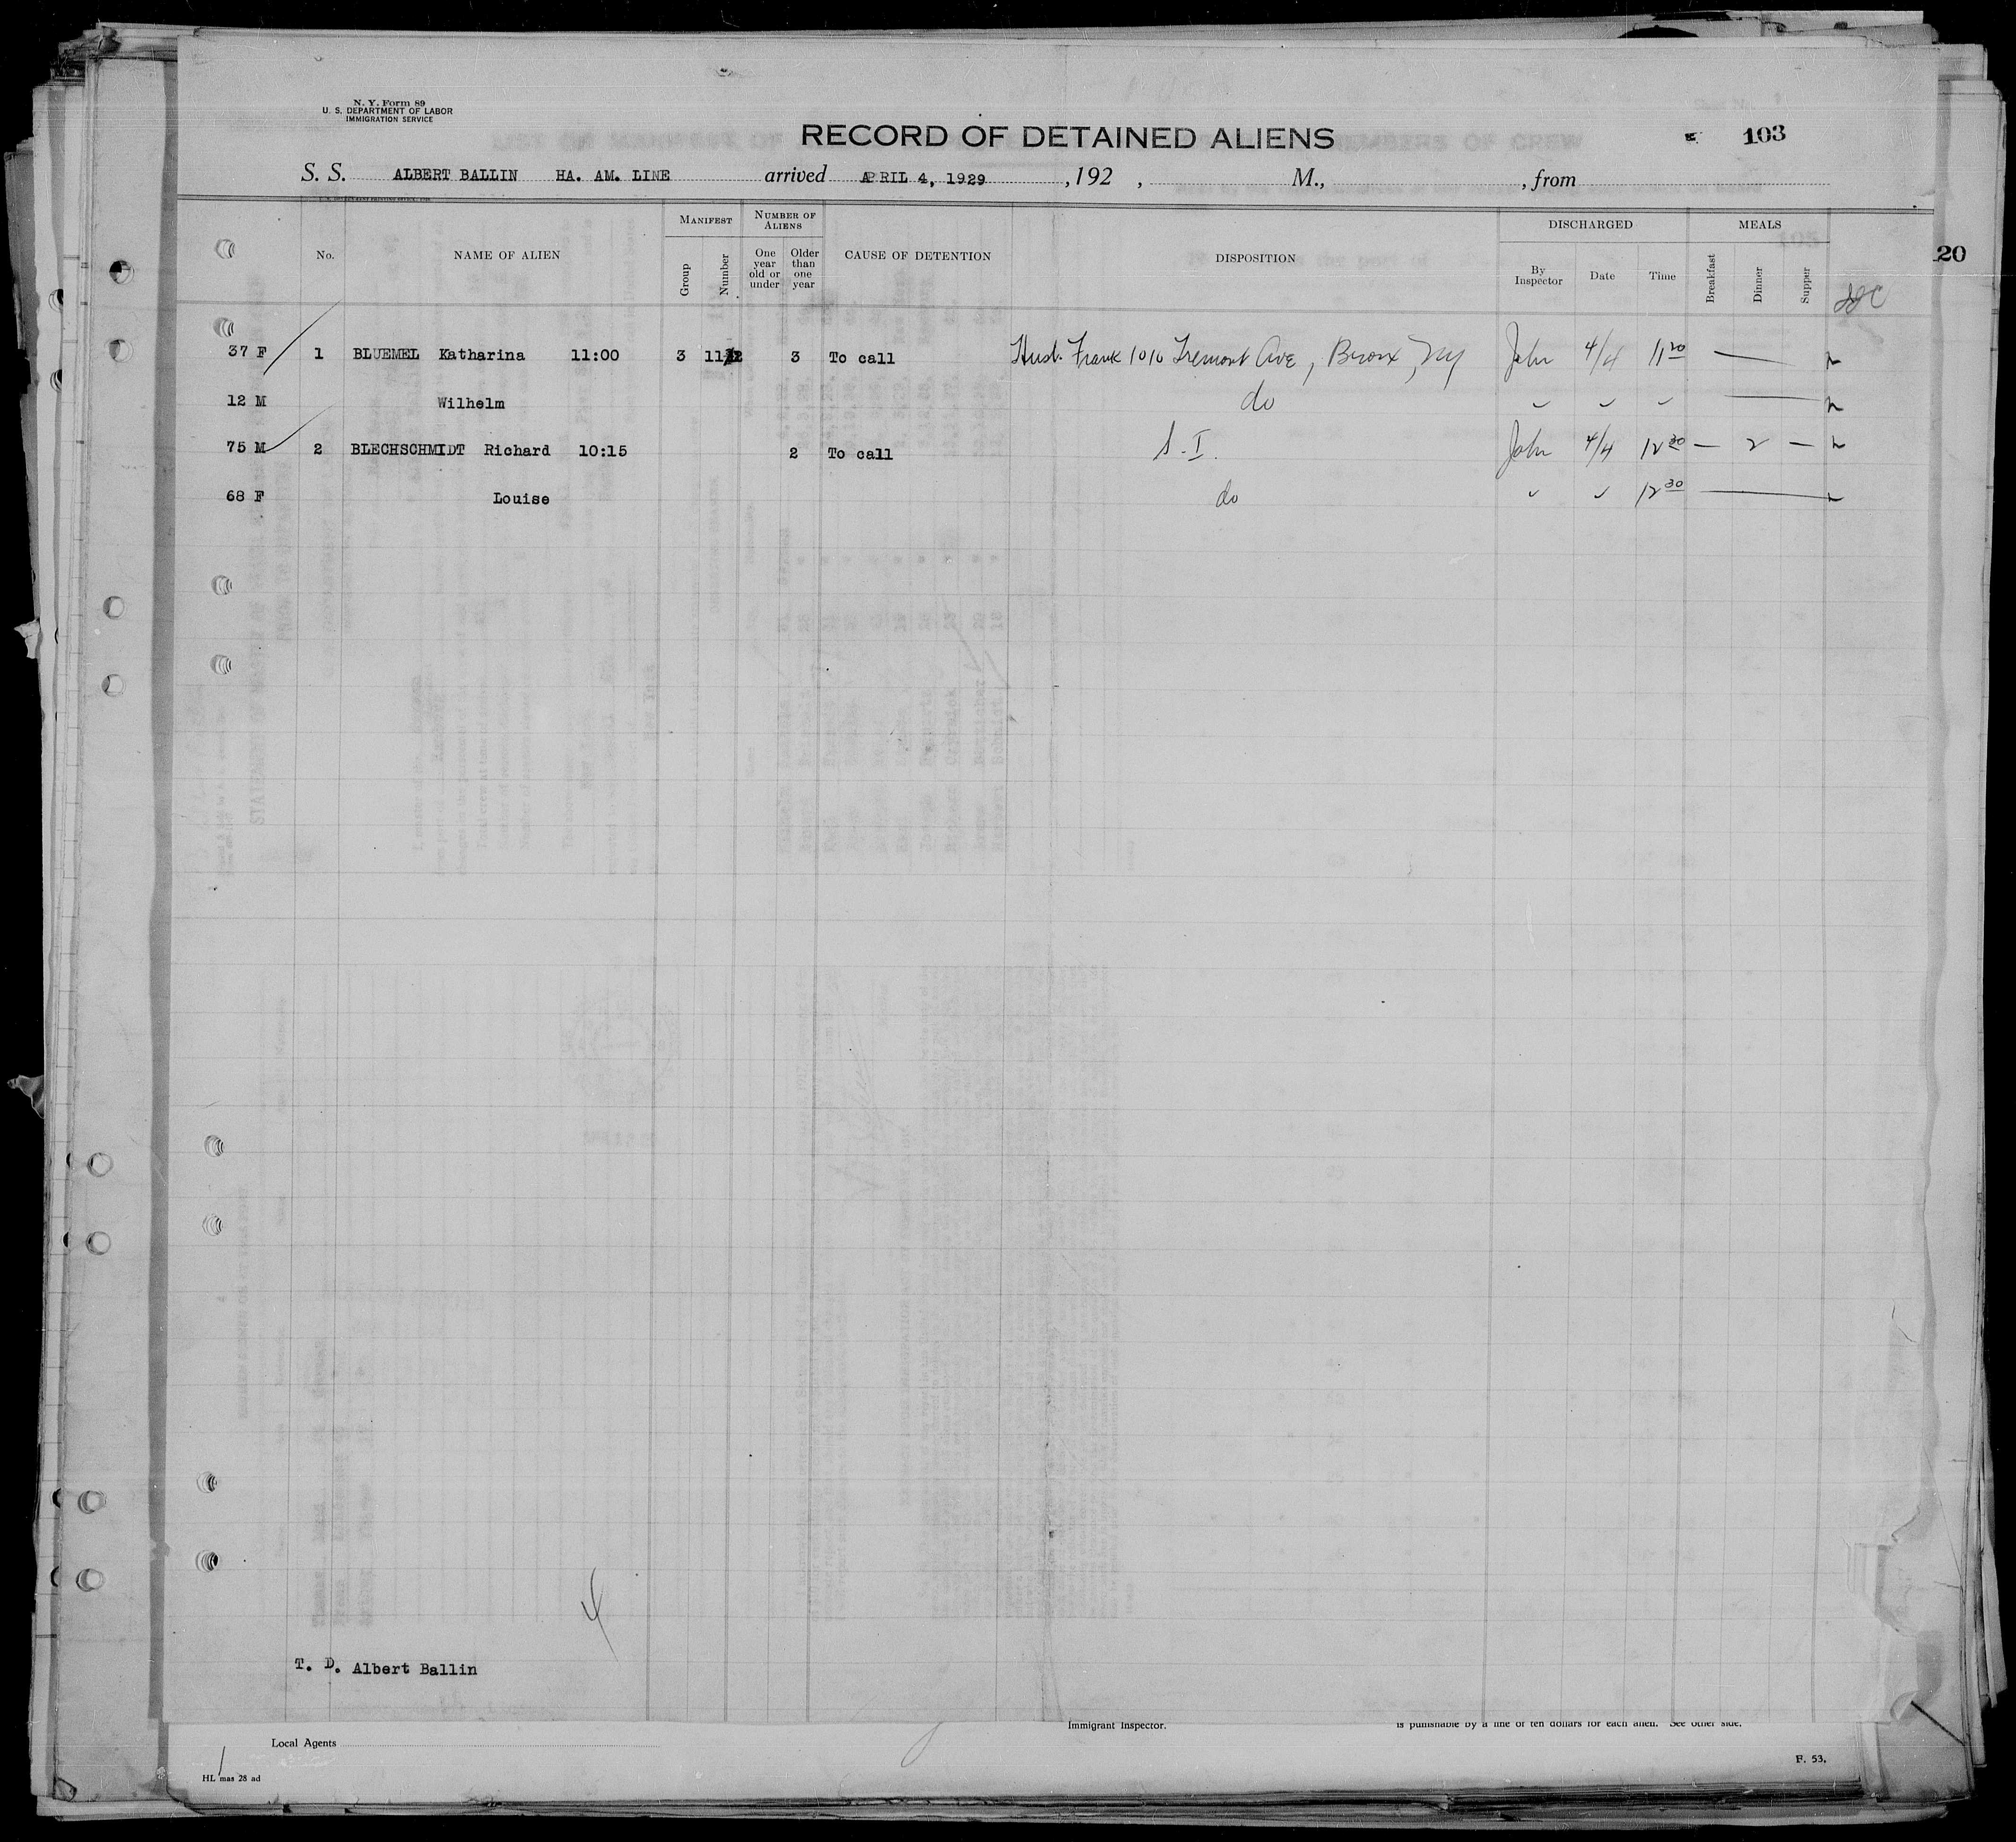 N. Y. Form 89
U. S. DEPARTMENT OF LABOR
IMMIGRATION SERVICE
RECORD OF DETAINED ALIENS
103
S. S. ALBERT BALLIN HA. AM. LINE arrived APRIL 4, 1929 , 192 , M., , from
No. NAME OF ALIEN MANIFEST Group Number NUMBER OF ALIENS One year old or under Older than one year CAUSE OF DETENTION DISPOSITION DISCHARGED By Inspector Date Time MEALS Breakfast Dinner Supper
20
37 F 1 BLUEMEL Katharina 11:00 3 11 3 To call Husb. Frank 1010 Tremont Ave, Bronx, NY John 4/4 11 20 —
12 M Wilhelm do
75 M 2 BLECHSCHMIDT Richard 10:15 2 To call S. I. John 4/4 12 30 — 2 —
68 F Louise do 12 30
4
T. D. Albert Ballin
Immigrant Inspector. is punishable by a fine of ten dollars for each alien. See other side.
Local Agents
F. 53.
HL mas 28 ad